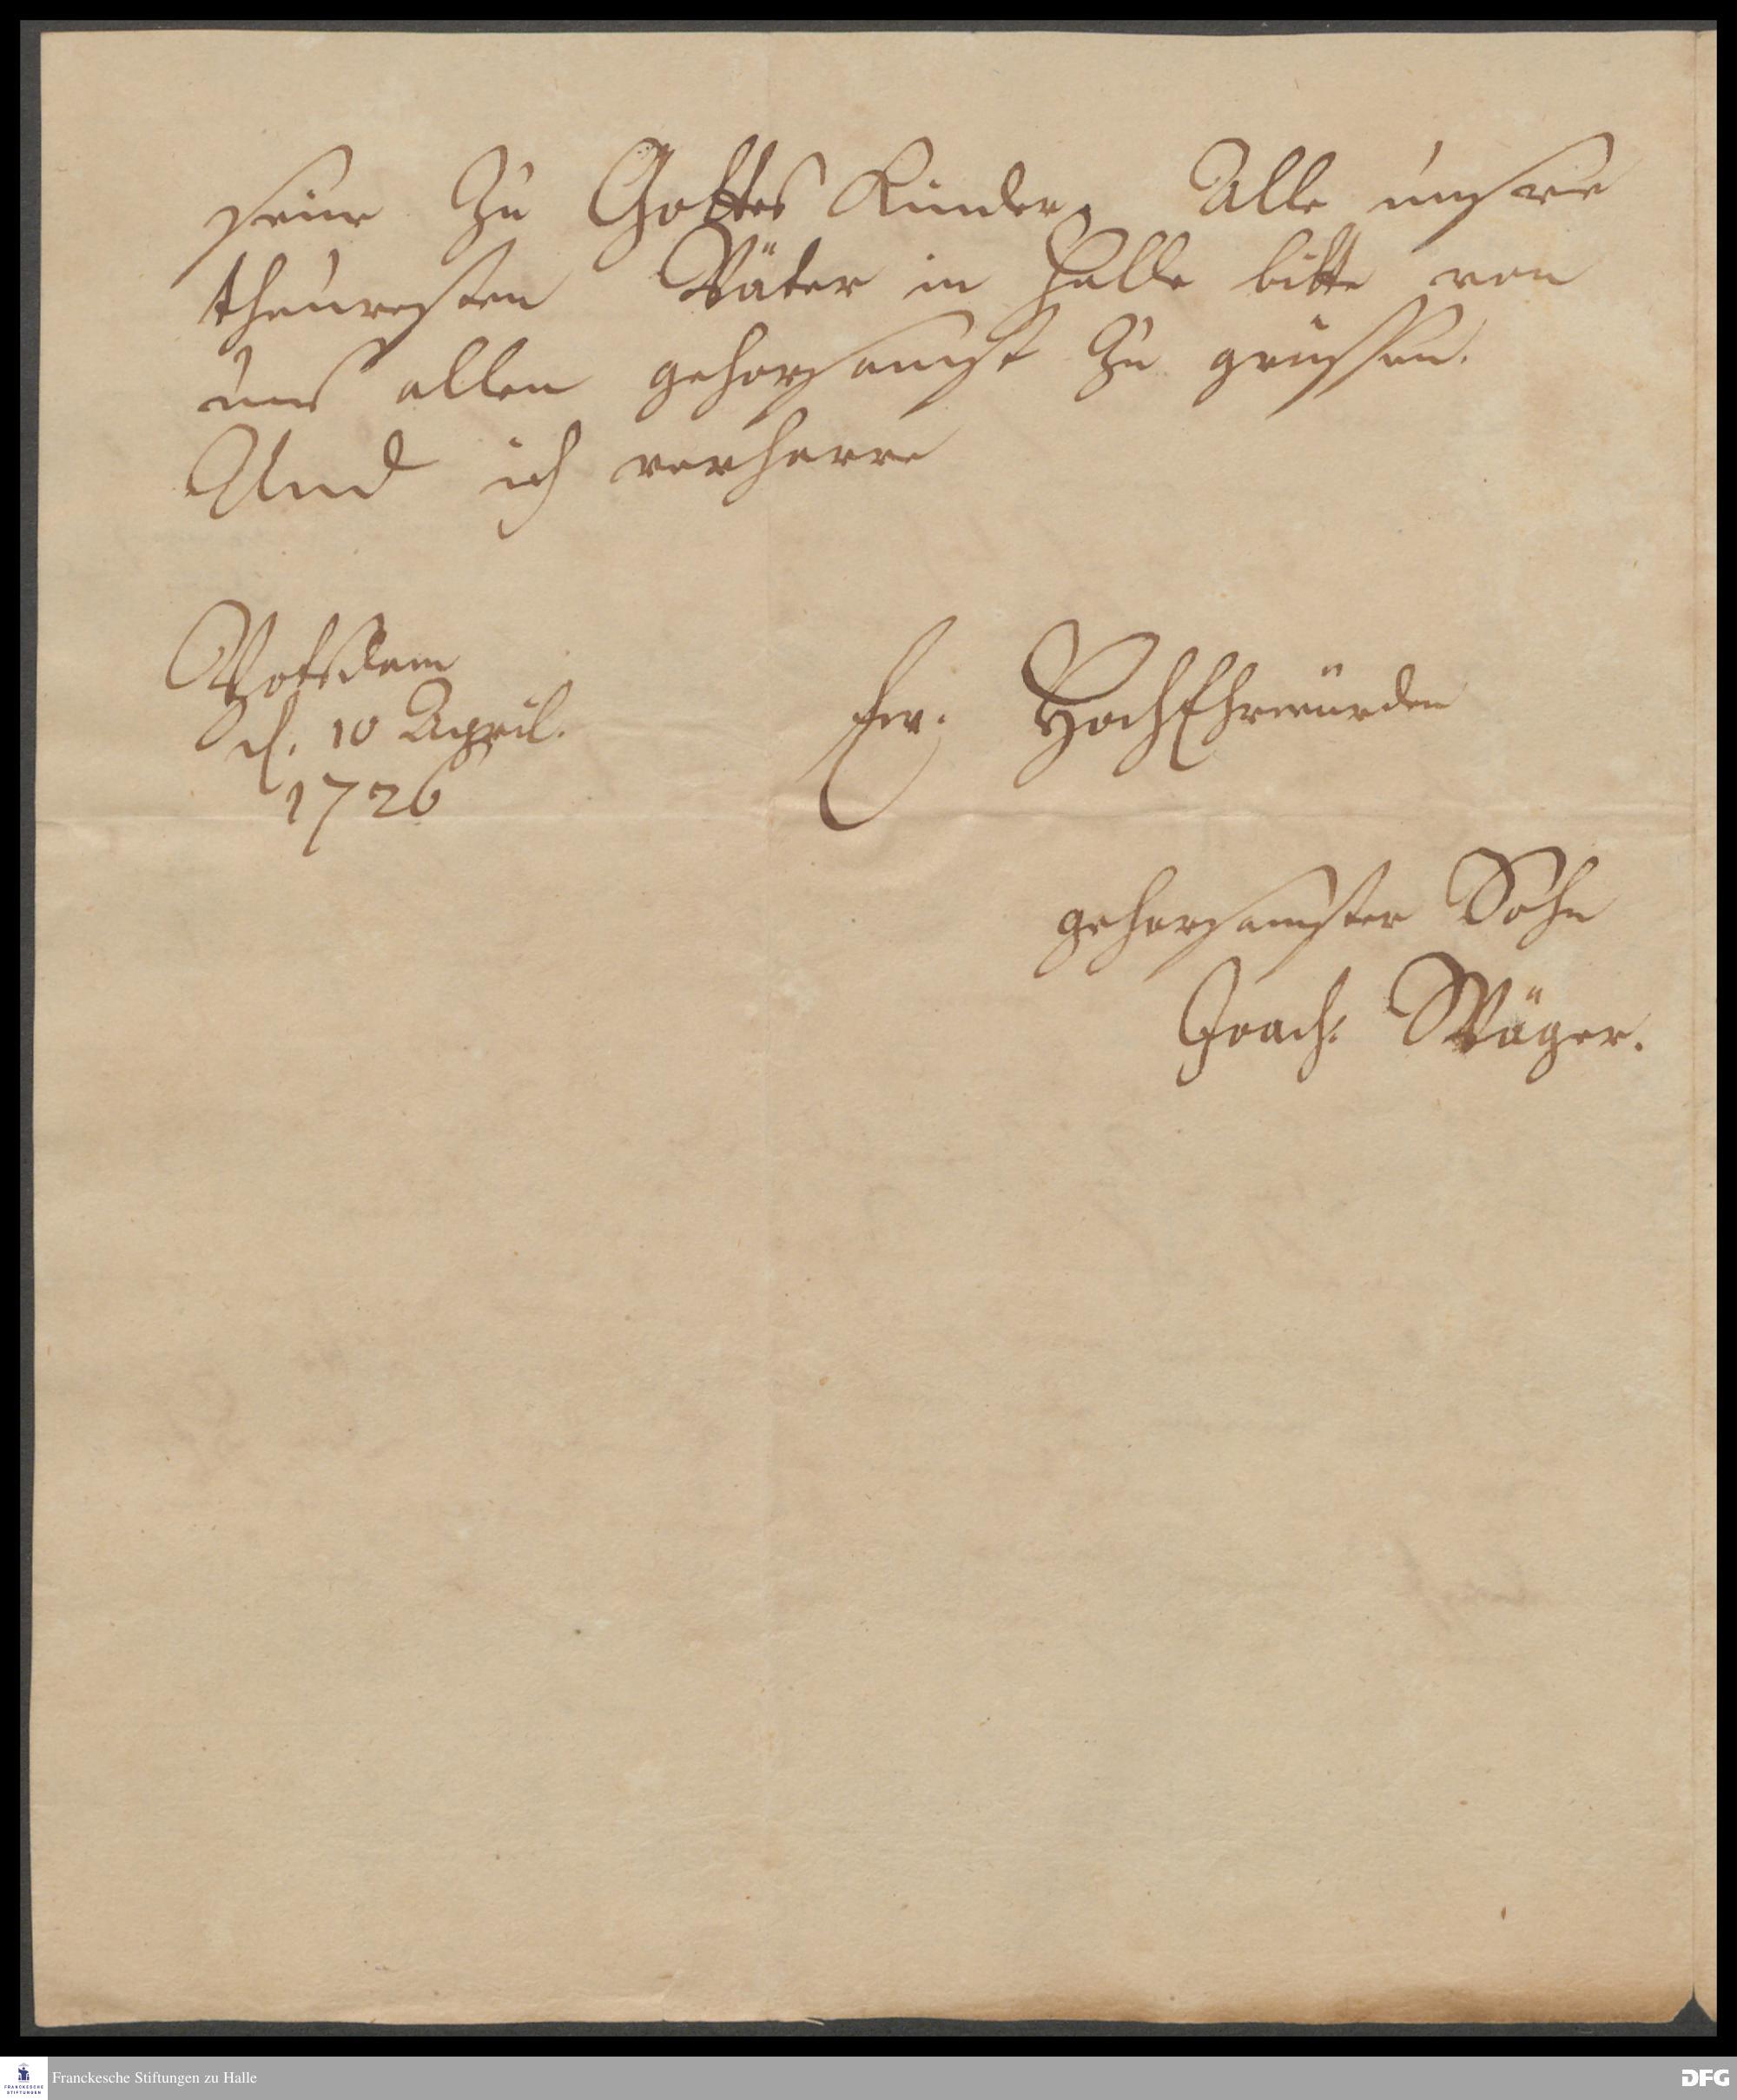 seine zu Gottes Kinder. Alle unsere
theuresten Väter in Halle bitte von
uns allen gehorsamst zu grüssen.
Und ich verharre
Potsdam
d. 10 April.
1726
Ew. HochEhrwürden
gehorsamster Sohn
Joach: Wäger.
FRANCKESCHE
STIFTUNGEN
Franckesche Stiftungen zu Halle
DFG